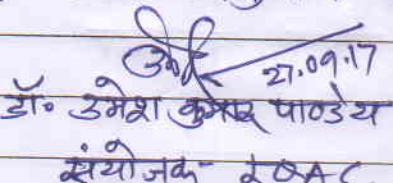 27.09.17
डॉ० उमेश कुमार पाण्डेय
संयोजक- IQAC